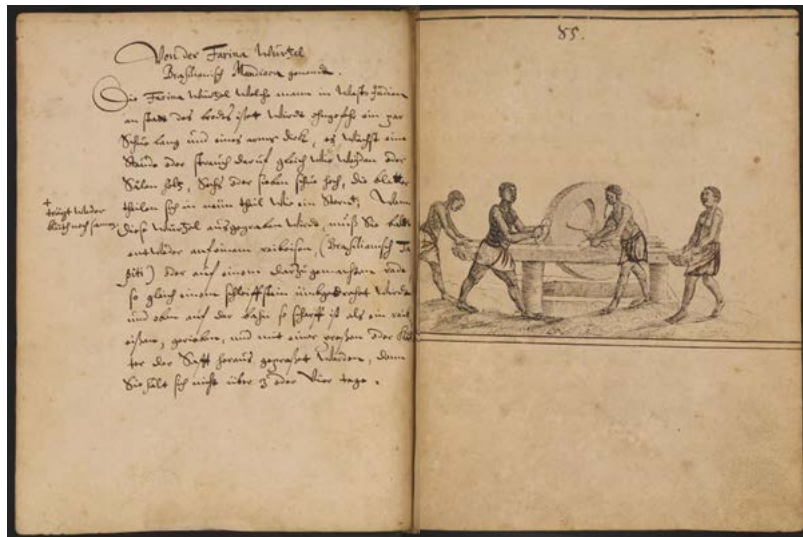 Von der Farina Würtzel
Brasilianisch Mandioca genandt.
Die Farina Würtzel welche mann in West Indien
an statt des brodes isset wirdt ohngefehr ein par
Schue lang und eines arms dick, es wächst eine
Staude oder strauch darauf gleich wie weyden oder
holtz, Sechs oder sieben schue hoch, die blätter
theilen sich in neün theil wie ein Stern; Wenn
+
trägt weder
blüth noch samen
diese würtzel ausgegraben wirdt, muß Sie baldt
entweder auf einem reibeisen, (Brasilianisch Ta
piti) oder auf einem darzu gemachten rade
so gleich einem schleiffstein umbgedrehet wirdt
und oben auf der bahn so scharff ist als ein reib
eisen, gerieben, und mit einer pressen oder
ter der Safft heraus gepresset werden, dann
Sie hält sich nicht über 3 oder vier tage.
85.